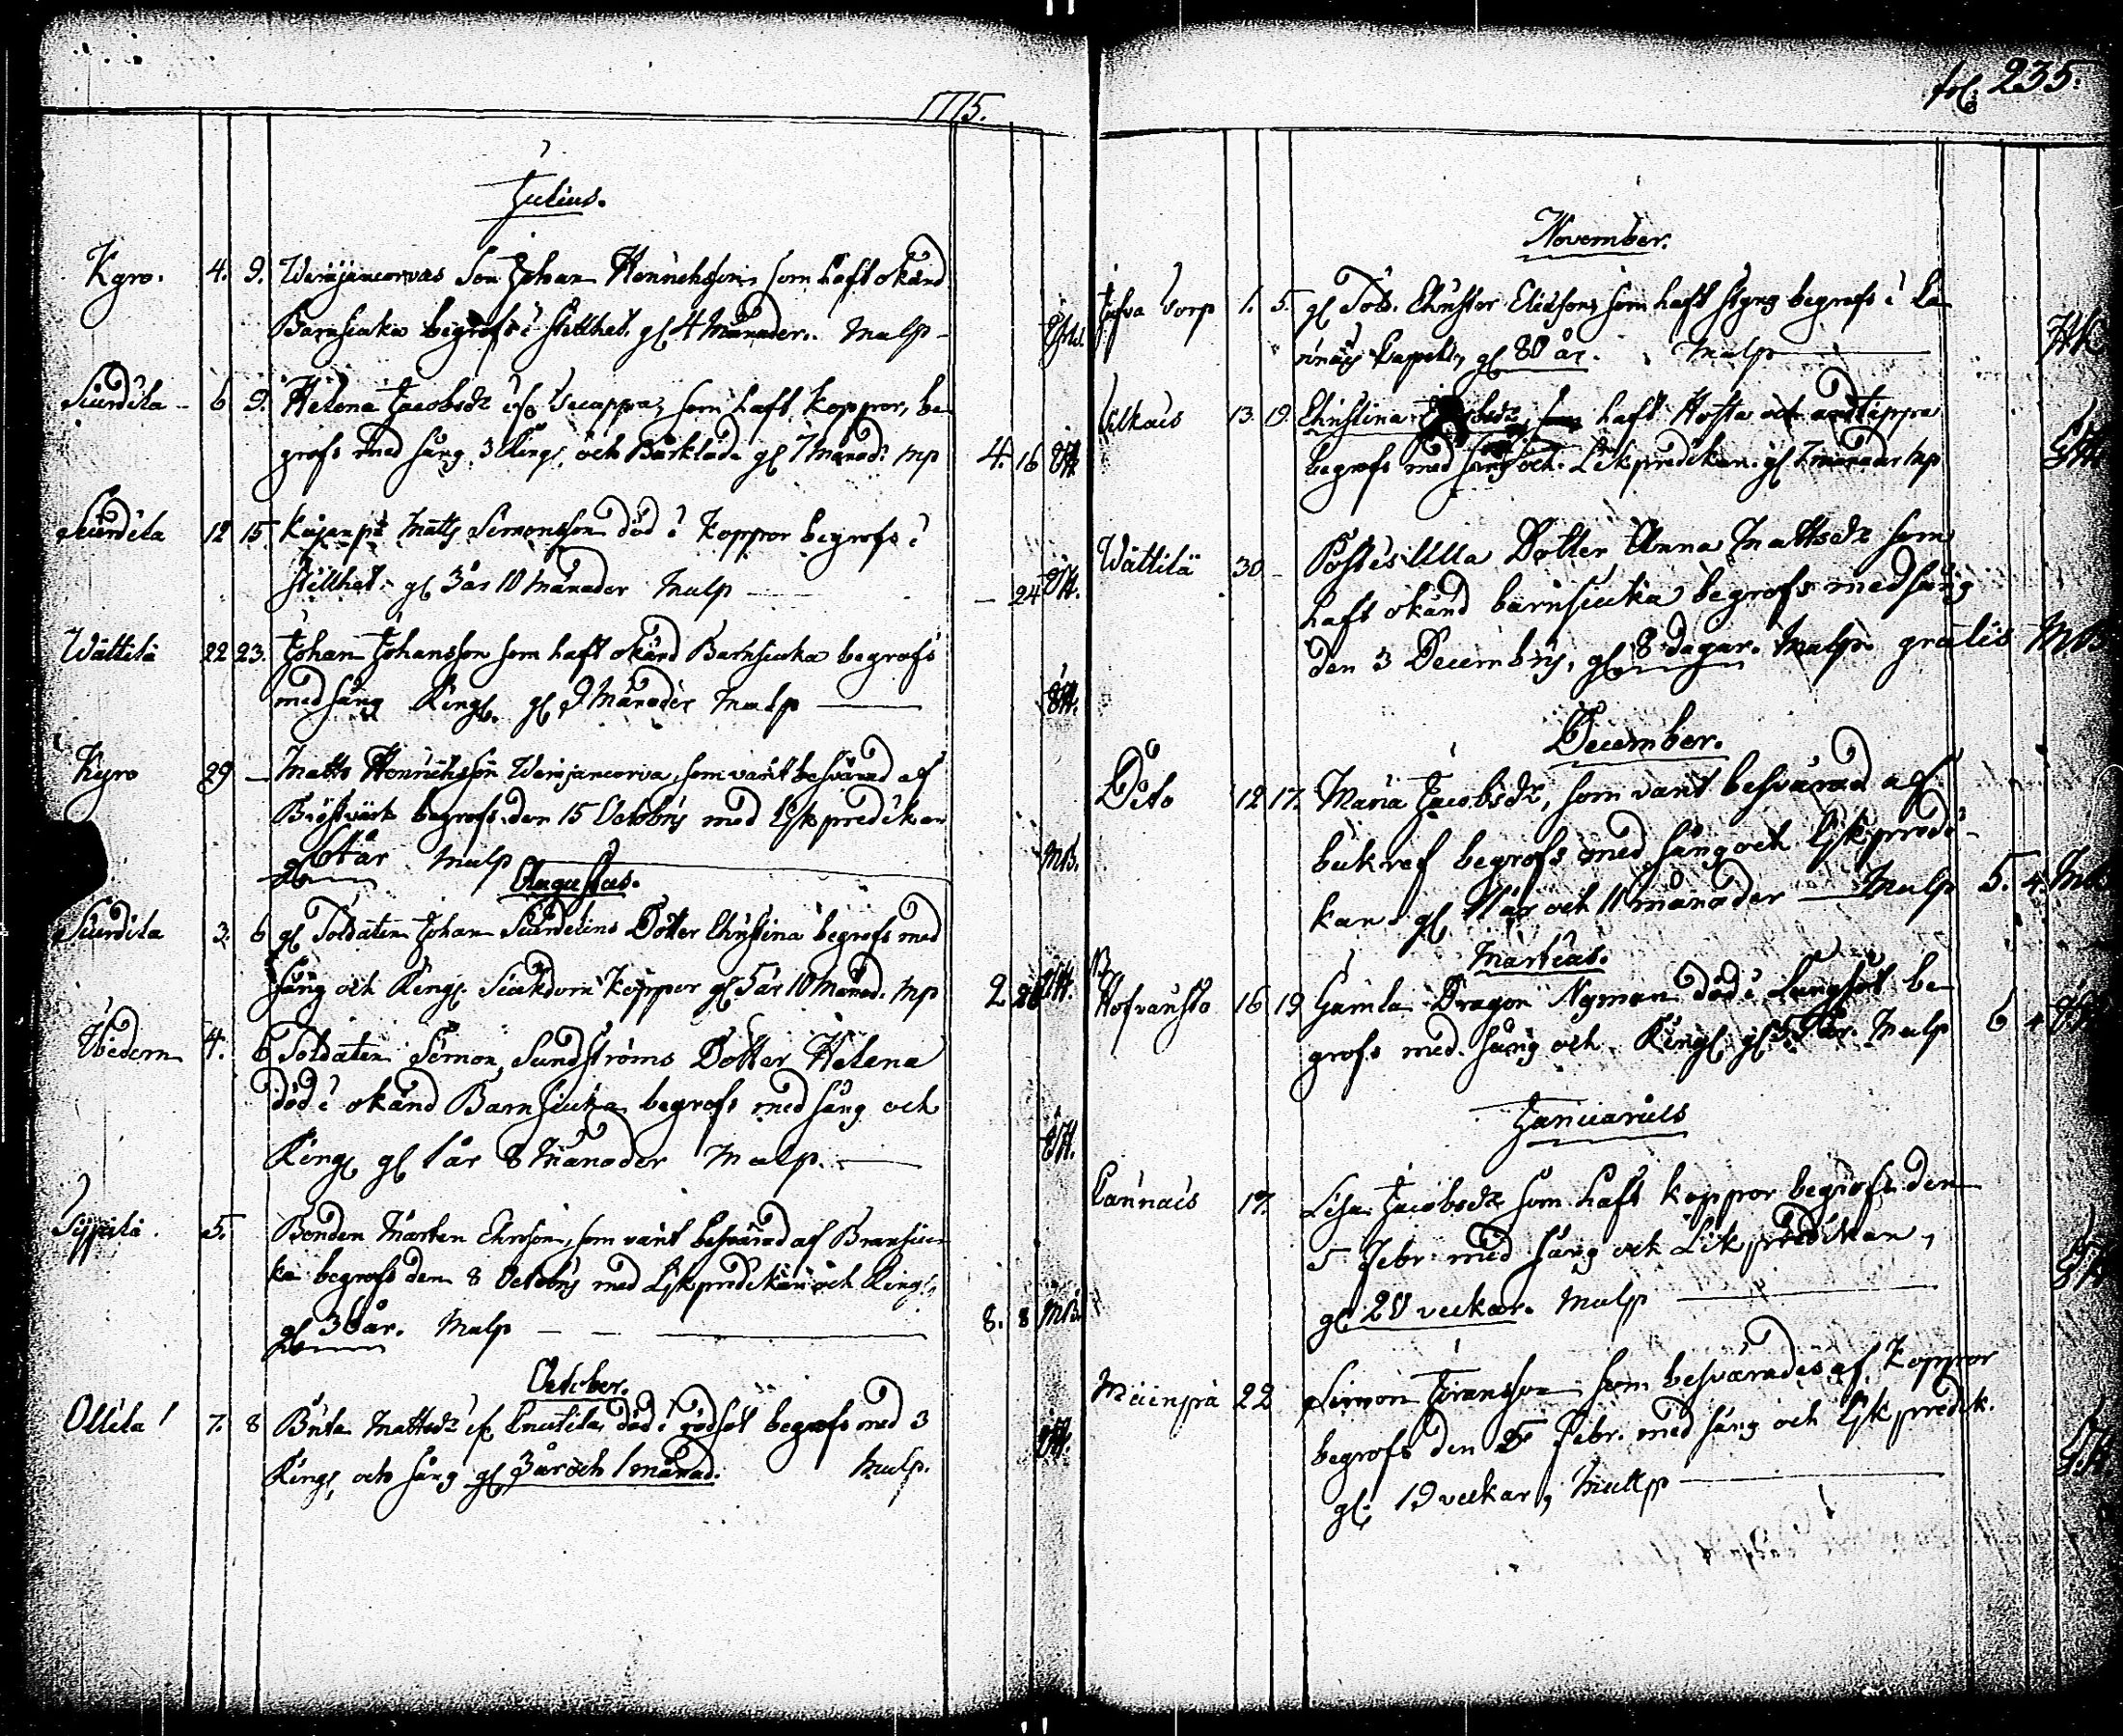 1775.
Julius.
Kyro. 4. 9. Weräjäncorvas Son Johan Henrichsson, som haft okänd
Barnsiuka begrofs i stillhet. gl. 4 Månader. Mulp
Siurdila 6 9. Helena Jacobsdr ifr. Uecappa, som haft koppor, be
grofs med sång, 3 Ring. och Bårkläde gl 7 Månad. Mp 4. 16
Siurdila 12 15. Kajanpä Matts Simonsson död i koppor begrofs i
stillhet. gl 3 år 10 Månader Mulp — 24
Wättilä 22 23. Johan Johansson som haft okänd Barnsiuka begrofs
med sång Ring. gl 9 Månader Mulp
Kyro 29 — Matts Henrichsson Weräjäncorva, som varit besvärad af
Bröstvärk begrofs den 15 Octobris med Likpredikan
gl 64 år Mulp MB.
Augustus.
Siurdila 3. 6 gl Soldaten Johan Siurdelins Dotter Christina begrofs med
sång och Ring. Siukdom koppor gl 5 år 10 Månad. Mp 2 28
4. 6 Soldaten Simon Sundströms Dotter Helena
död i okänd Barnsiuka begrofs med sång och
Ring. gl 1 år 8 Månader Mulp.
Seppälä. 5. Bonden Mårten Ersson, som varit besvärad af Bransiu
ka begrofs den 8 Octobris med Likpredikan och Ring.
gl 36 år. Mulp 8. 8 MB.
October.
Ollila 7. 8 Brita Mattsdr ifr. Knutila, död i rödsot begrofs med 3
Ring, och sång gl 3 år och 1 månad. Mulp.
fol. 235.
November.
Torp 1. 5. gl Sold. Christer Eliasson, som haft styng begrofs i La
Capell, gl 80 år. Mulp
13. 19. Christina haft Hosta och andtäppa
begrofs med sång och Likpredikan. gl 7 månader Mp
Wättilä 30 — Dotter Anna Mattsdr som
haft okänd barnsiuka begrofs med sång
den 3 Decembris, gl 8 dagar. Mulp. gratis MB
December.
Dito 12 17. Maria Jacobsdr, som varit besvärad af
bukref begrofs med sång och Likpredi-
kan gl 11 år och 11 månader Mulp 5. 4. MB
Martius.
16 19 Gamla Dragon Nyman död i Lungsot be
grofs med sång och Ring. gl Mulp 6 4
Januarius
Lannais 17. Lisa Jacobsdr som haft koppor begrofs den
5 Febr. med sång och Likpredikan,
gl. 20 veckor. Mulp
Mäenpä 22 Simon Göransson som besvärades af koppor
begrofs den 5 Febr. med sång och Likpredik.
gl. 19 veckor, Mulp